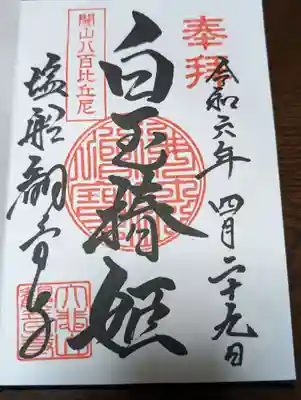 奉拝
令和六年四月二十九日
白玉椿姫
開山八百比丘尼
塩船観音寺